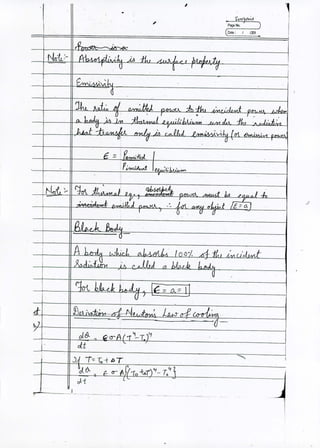 Page No.
Date: / /20
Power is a
Note:- Absorptivity is the surface property.
Emissivity
The ratio of emitted power to the incident power when
a body is in thermal equilibrium under the radiative
heat transfer only is called emissivity (or emissive power)
E = P emitted
P incident | equilibrium
Note:- For thermal eq., absorbed power must be equal to
incident emitted power, ∴ for any object E = a
Black Body
A body which absorbs 100% of the incident
radiation is called a black body
For black body, E = a = 1
Derivation of Newton's Law of Cooling
dQ/dt = εσA(T⁴-T₀⁴)
If T = T₀ + ΔT
dQ/dt = εσA{(T₀+ΔT)⁴-T₀⁴}